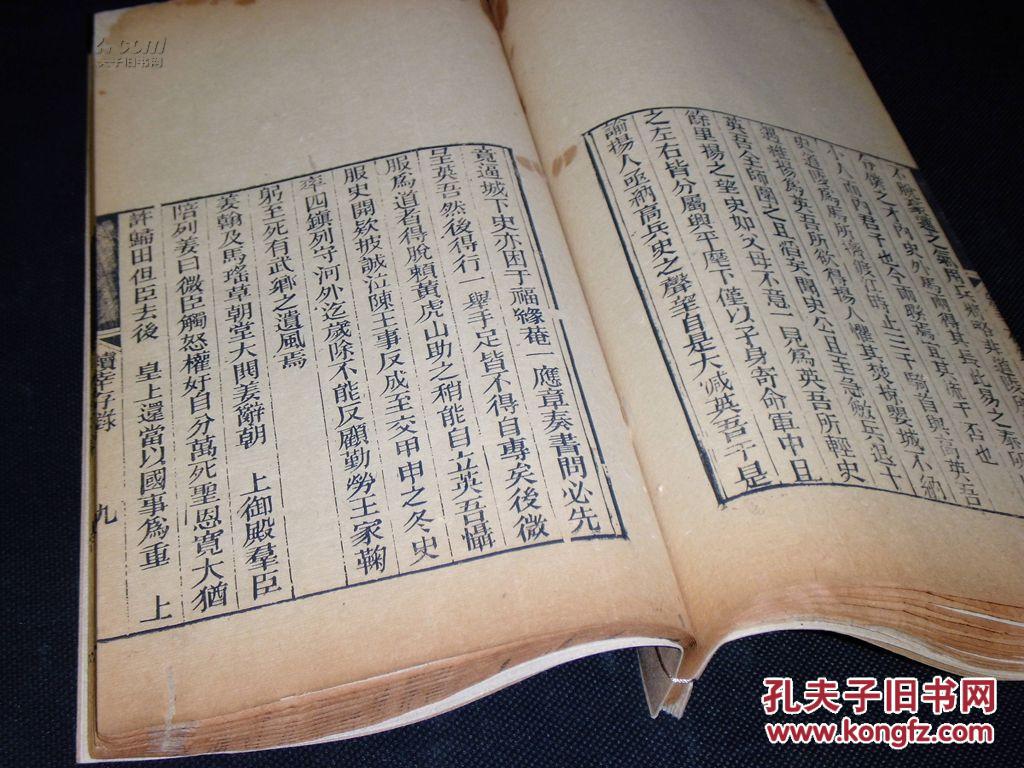 小人而內君子也今而
否也
史道隣爲馬所擠渡江時止三千騎首與高英吾
維揚爲英吾所欲得揚人懼其焚掠嬰城不納
英吾全師圍之且宿矣聞史公且至急斂兵退十
餘里揚之望史如父母不意一見爲英吾所輕史
之左右皆分屬興平麾下僅以子身寄命軍中且
諭揚人亟納高兵史之聲望自是大減英吾于是
竟逼城下史亦困于福緣菴一應章奏書問必先
呈英吾然後得行一舉手足皆不得自專矣後微
服爲道者得脫賴黃虎山助之稍能自立英吾懾
服史開欵披誠泣陳王事反成至交甲申之冬史
率四鎮列守河外迄歲除不能反顧勤勞王家鞠
躬至死有武鄉之遺風焉
姜翰及馬瑤草朝堂大閧姜辭朝　上御殿羣臣
陪列姜曰微臣觸怒權奸自分萬死聖恩寬大猶
許歸田但臣去後　皇上還當以國事爲重　上
續幸存錄　九
夫子旧书网
孔夫子旧书网
www.kongfz.com